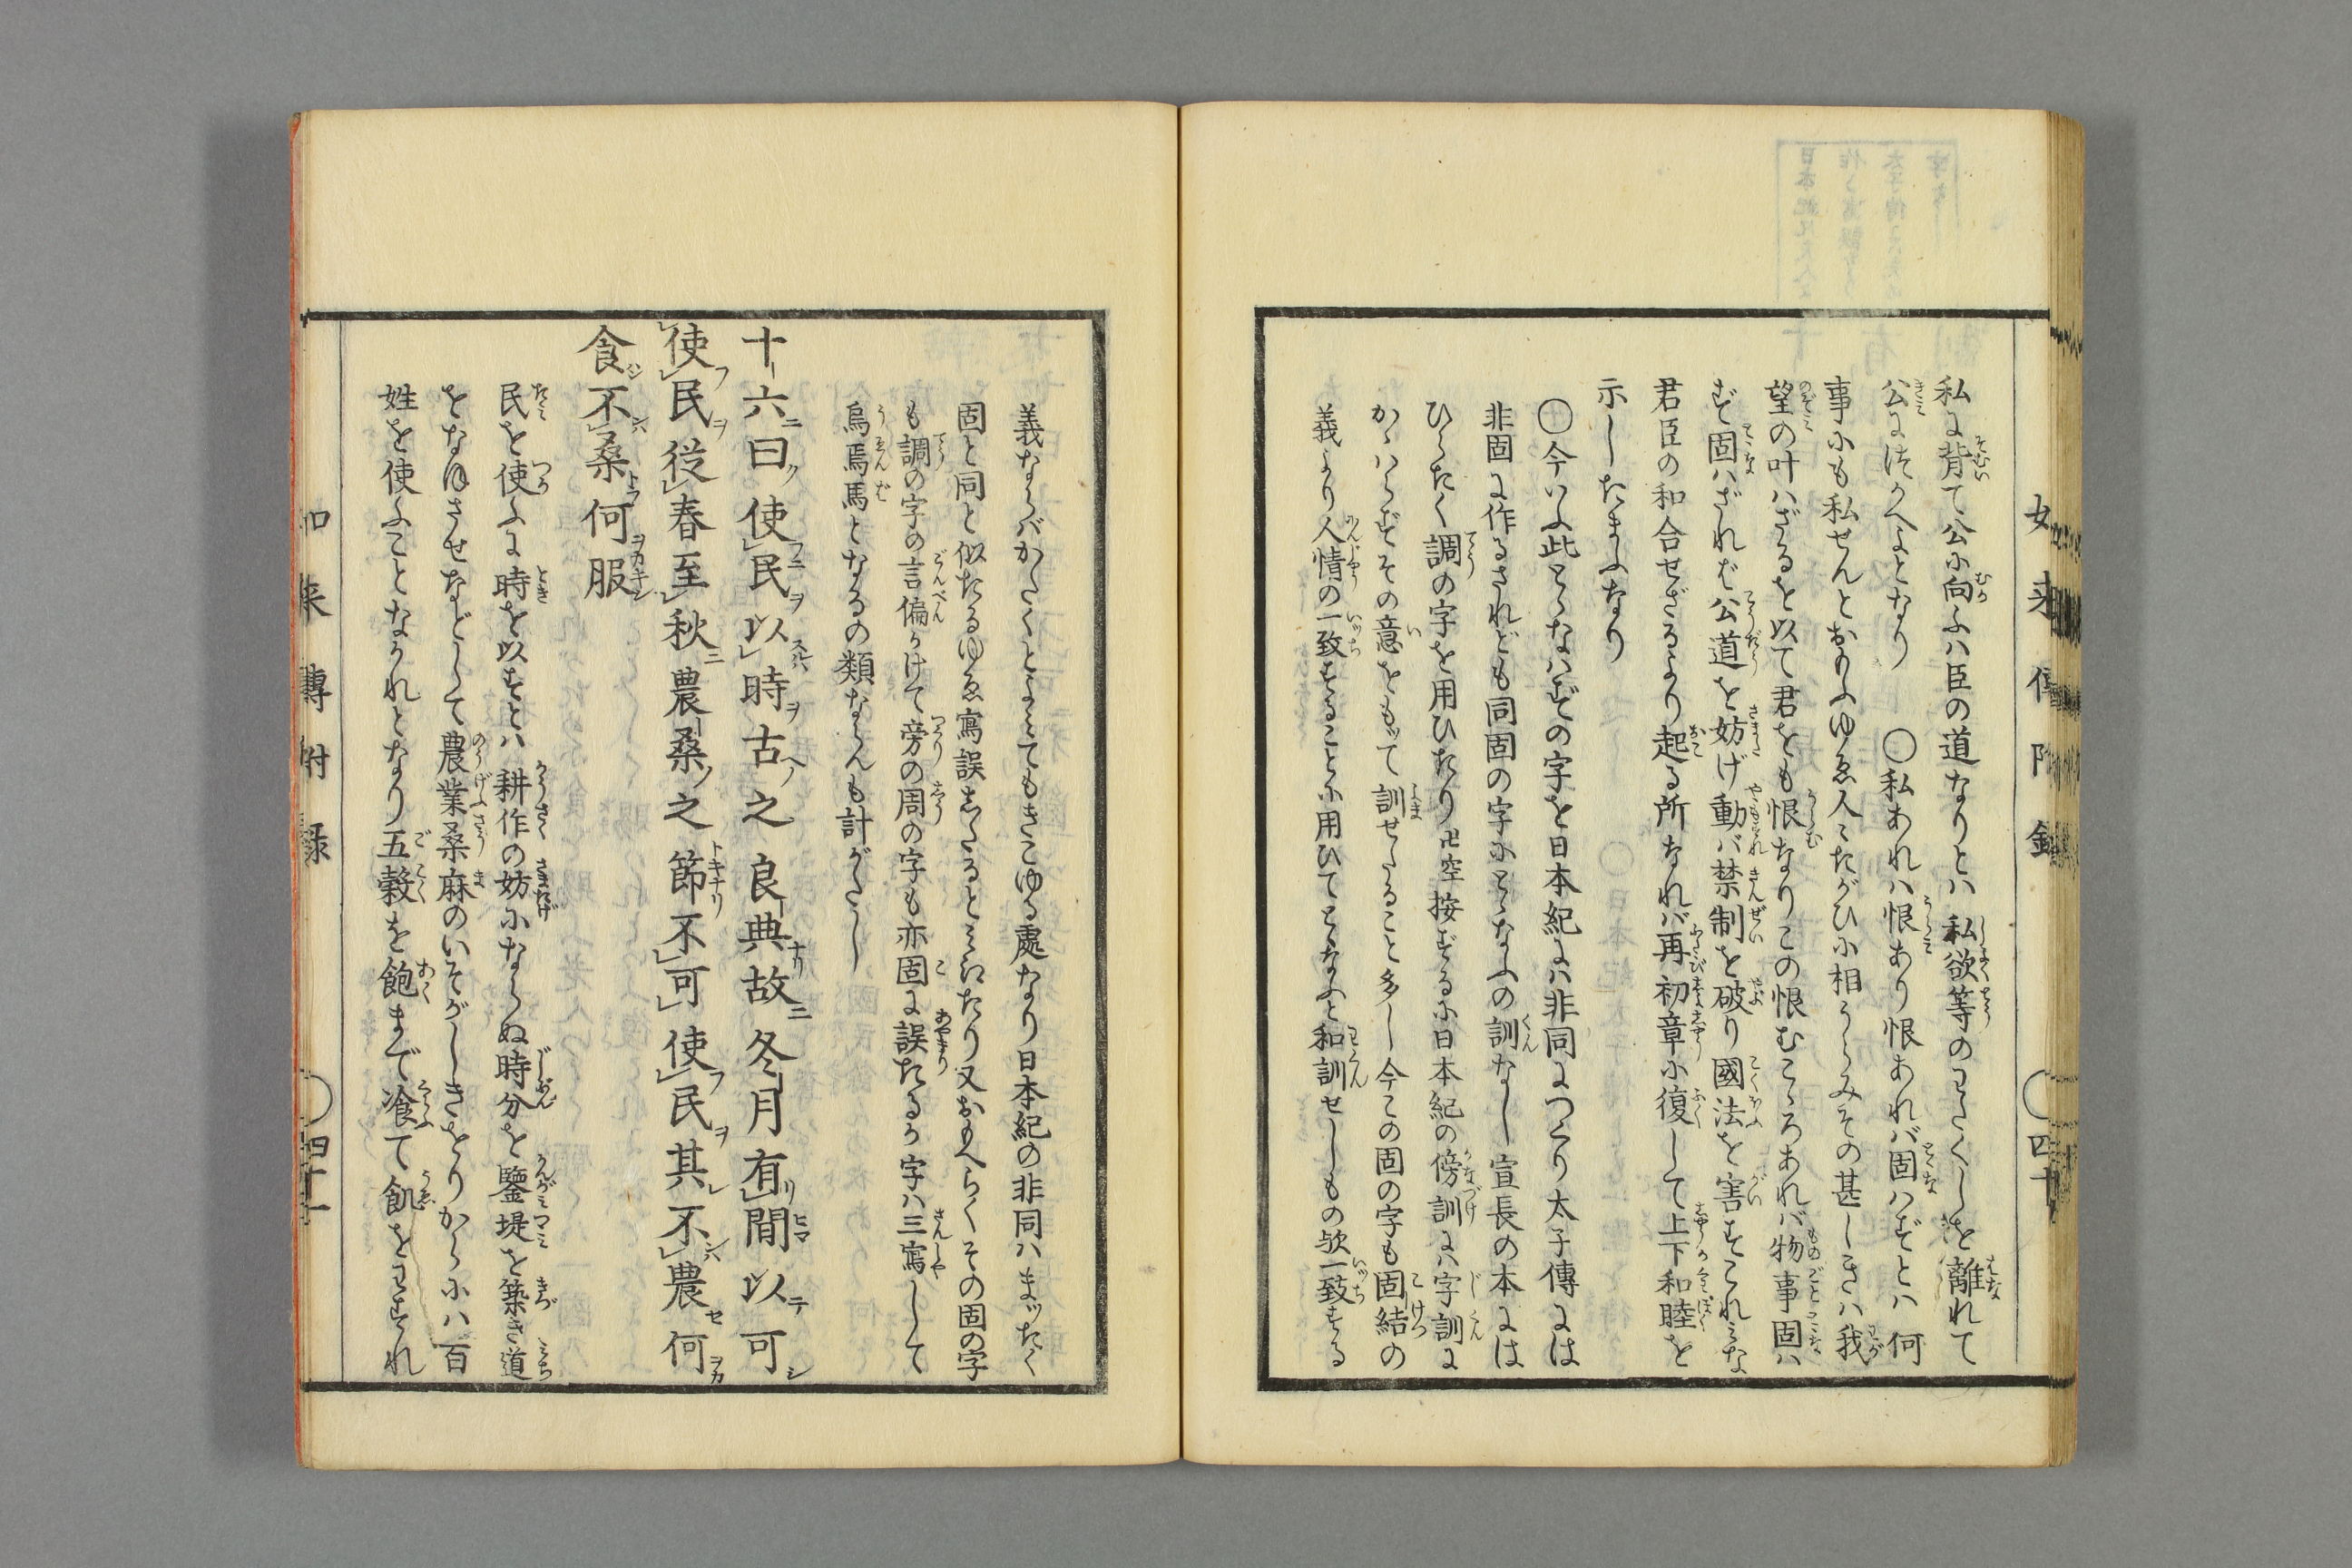 私に背て公に向ふハ臣の道なりとハ私欲等のわたくしを離れて
公につかへよとなり　〇私あれハ恨あり恨あれバ固ハずとハ何
事にも私せんとおもふゆゑ人〻たがひに相うらみその甚しきハ我
望の叶ハざるを以て君をも恨なりこの恨むこゝろあれバ物事固ハ
ず固ハざれば公道を妨げ動バ禁制を破り國法を害すこれみな
君臣の和合せざるより起る所なれバ再初章に復して上下和睦を
示したまふなり
〇今いふ此とゝなハずの字を日本紀にハ非同につくり太子傳には
非固に作るされども同固の字にとゝなふの訓なし宣長の本には
ひらたく調の字を用ひたり卍空按ずるに日本紀の傍訓にハ字訓に
かゝハらずその意をもッて訓せたること多し今この固の字も固結の
義より人情の一致することに用ひてとゝなふと和訓せしもの歟一致する
如来傳附録　〇四十
義ならバかたくとよみてもきこゆる處なり日本紀の非同ハまッたく
固と同と似たるゆゑ寫誤しくるとミえたり又おもへらくその固の字
も調の字の言偏かけて旁の周の字も亦固に誤たるか字ハ三寫して
烏焉馬となるの類ならんも計がたし
十六曰使民以時古之良典故冬月有間以可
使民從春至秋農桑之節不可使民其不農何
食不桑何服
民を使ふに時を以すとハ耕作の妨にならぬ時分を鑒堤を築き道
をなほさせなどして農業桑麻のいそがしきをりからにハ百
姓を使ふことなかれとなり五穀を飽まで飡て飢をわすれ
如来傳附録　〇四十一